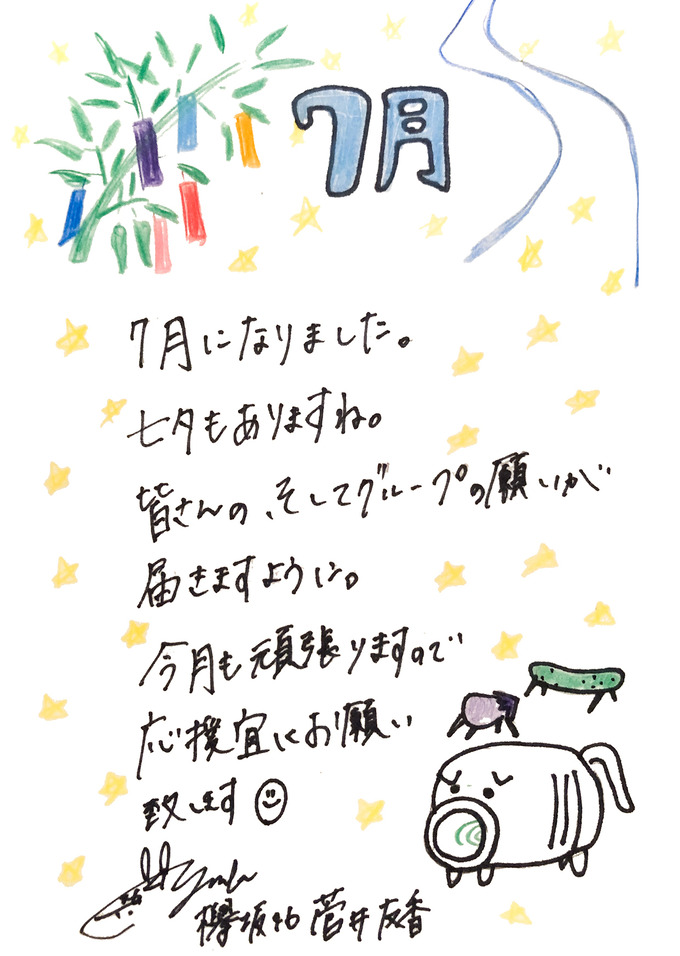 7月
7月になりました。
七夕もありますね。
皆さんの、そしてグループの願いが
届きますように。
今月も頑張りますので
応援宜しくお願い
致します
欅坂46 菅井友香